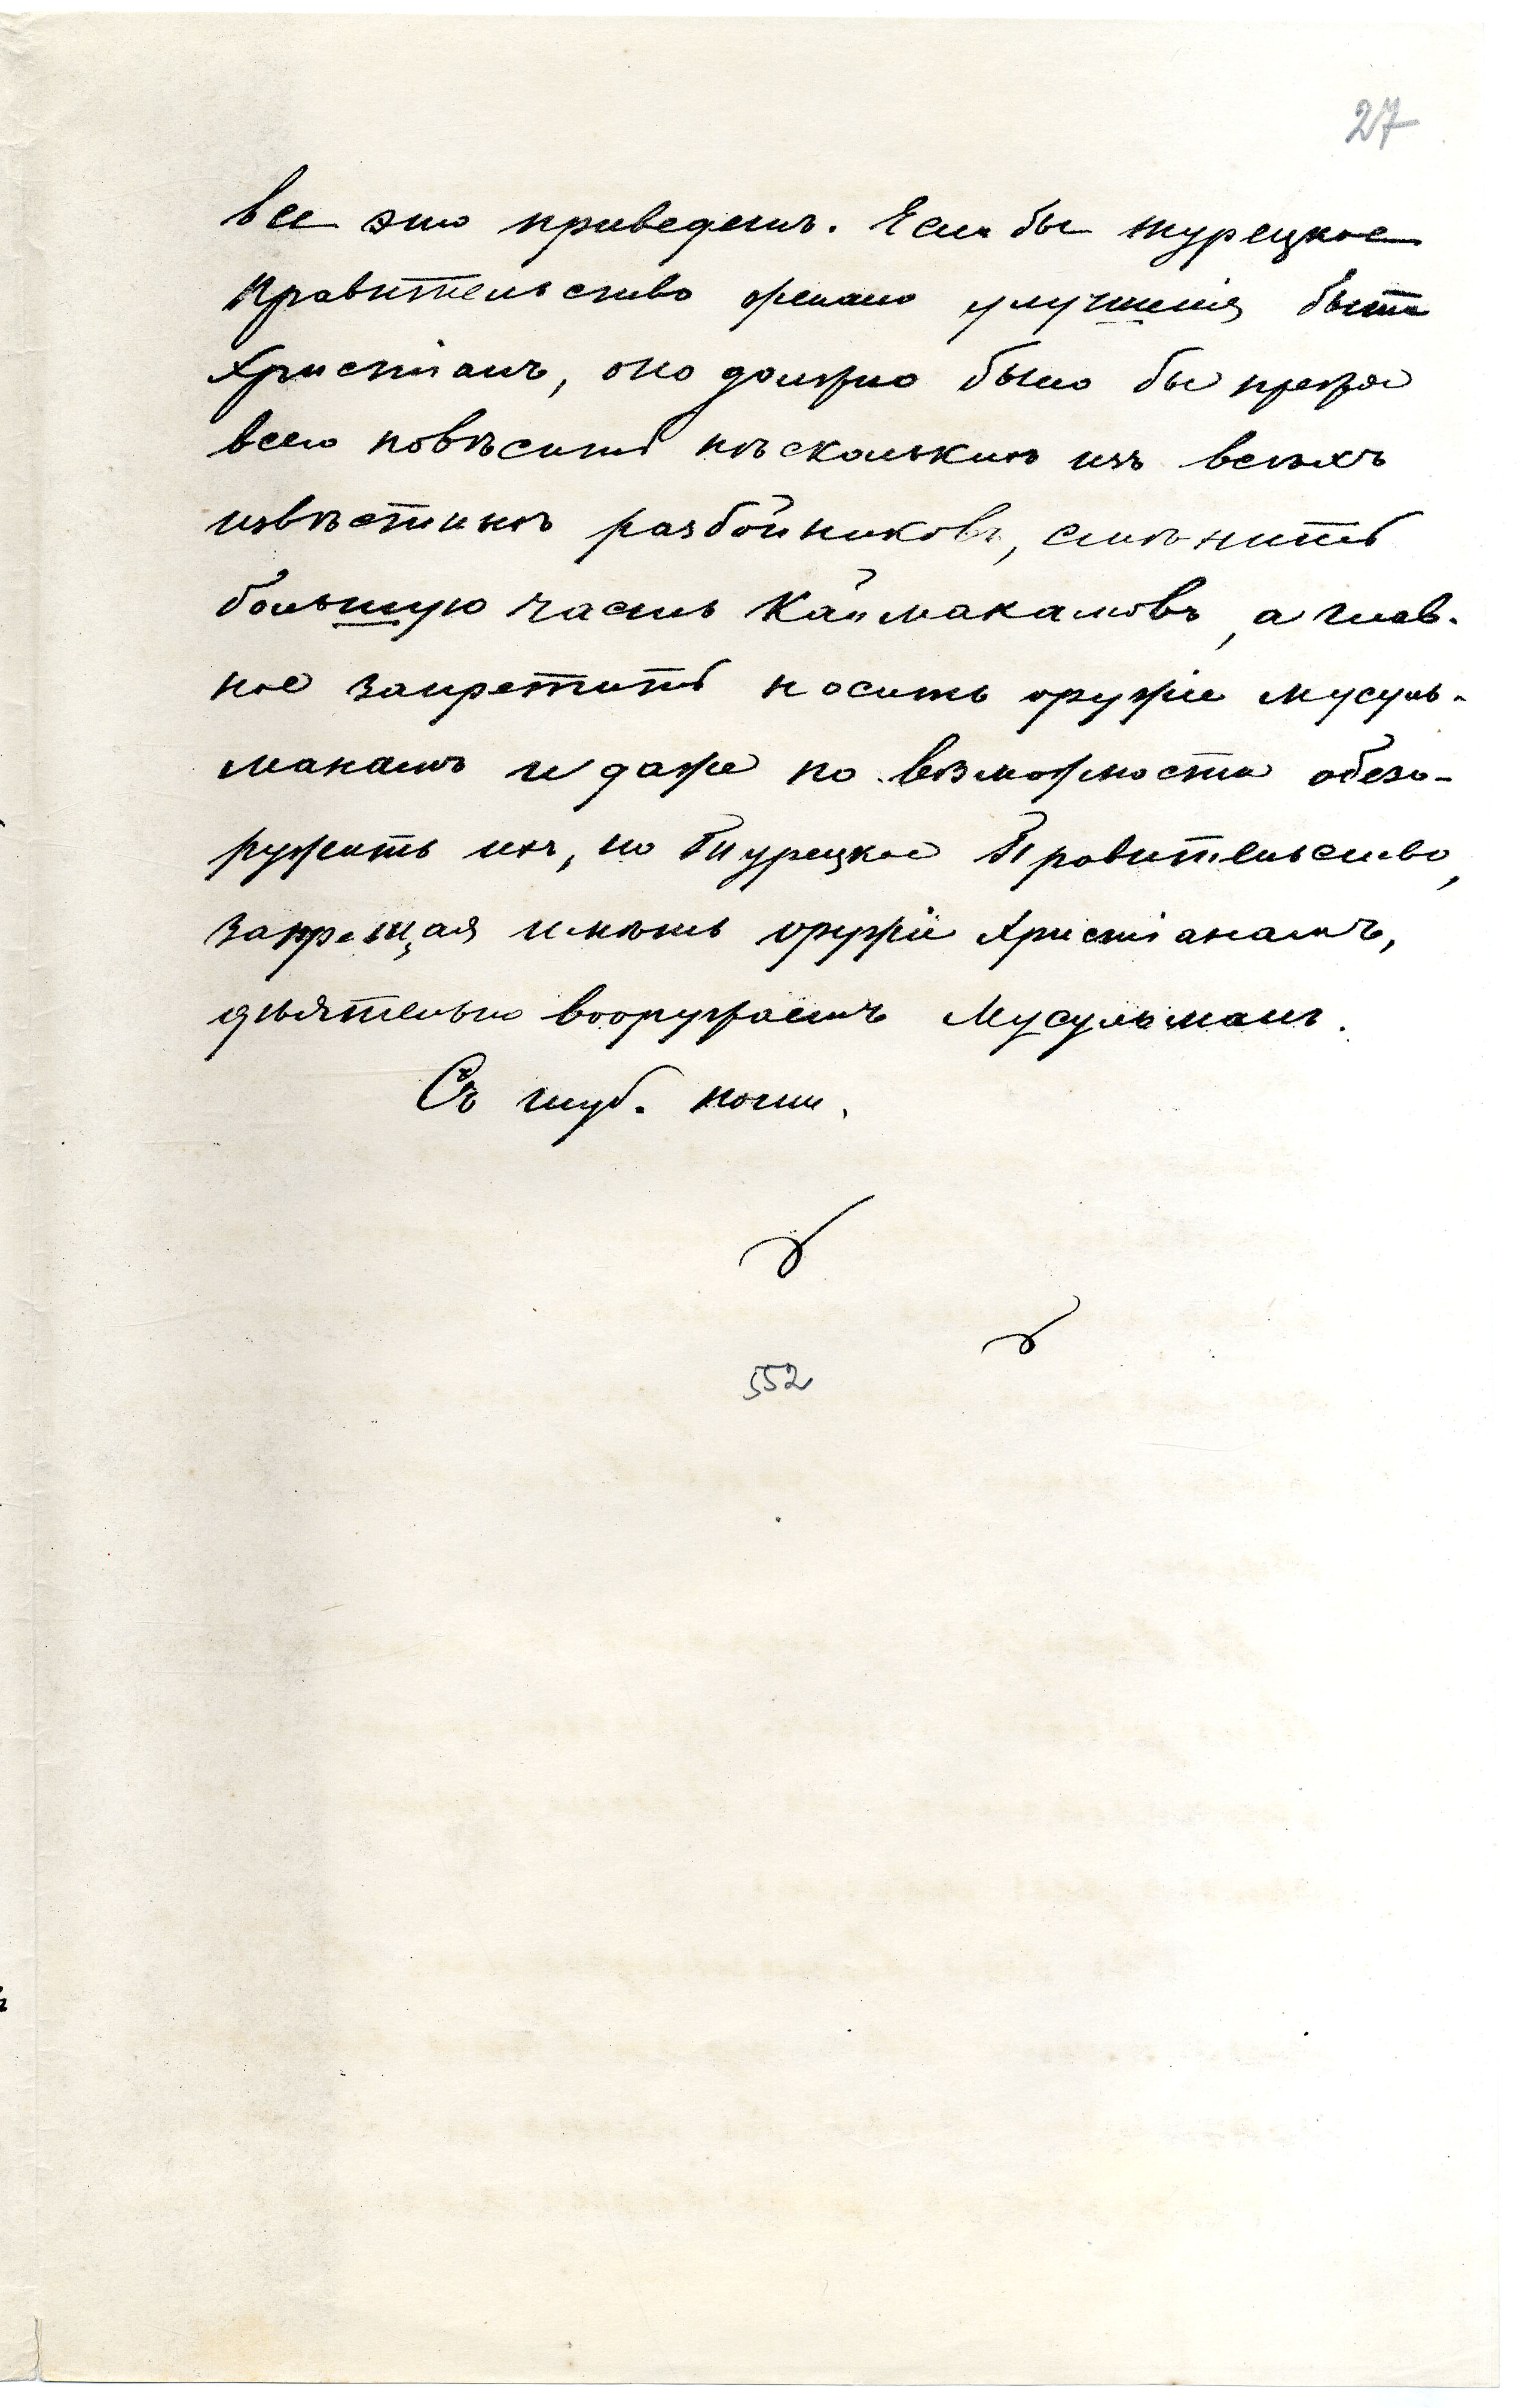 27
все это приведетъ. Если бы турецкое
Правительство желало улучшенія быта
Христіанъ, оно должно было бы прежде
всего повѣсить нѣсколькихъ изъ всѣмъ
извѣстныхъ разбойниковъ, смѣнить
большую часть Каймакамовъ, а глав-
ное запретить носить оружіе мусуль-
манамъ и даже по возможности обезо-
ружить ихъ, но Турецкое Правительство,
запрещая имѣть оружіе Христіанамъ,
дѣятельно вооружаетъ Мусульманъ.
Съ глуб. почт.
552